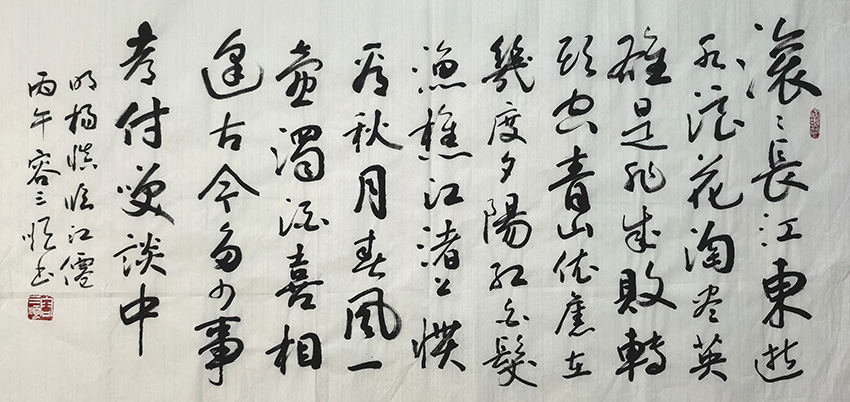 滚〻長江東逝
水浪花淘尽英
雄是非成敗轉
头空青山依舊在
幾度夕陽红白髮
漁樵江渚上惯
看秋月春風一
壶濁酒喜相
逢古今多少事
都付笑談中
明楊慎临江僊
丙午容三书